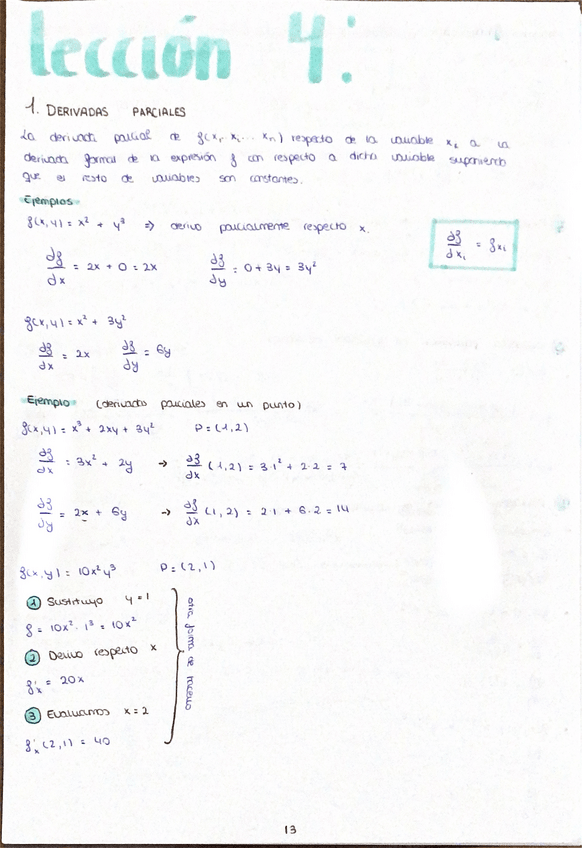 lección 4:
1. DERIVADAS PARCIALES
La derivada parcial de f(x₁, x₂... xₙ) respecto de la variable xᵢ a la
derivada formal de la expresión f con respecto a dicha variable suponiendo
que el resto de variables son constantes.
Ejemplos
f(x,y) = x² + y³ => derivo parcialmente respecto x.
∂f/∂xᵢ = fxᵢ
∂f/∂x = 2x + 0 = 2x ∂f/∂y = 0 + 3y = 3y²
f(x,y) = x² + 3y²
∂f/∂x = 2x ∂f/∂y = 6y
Ejemplo (derivadas parciales en un punto)
f(x,y) = x³ + 2xy + 3y² P = (1,2)
∂f/∂x = 3x² + 2y → ∂f/∂x (1,2) = 3·1² + 2·2 = 7
∂f/∂y = 2x + 6y → ∂f/∂x (1,2) = 2·1 + 6·2 = 14
f(x,y) = 10x²y³ P = (2,1)
① Sustituyo y = 1
f = 10x² · 1³ = 10x²
② Derivo respecto x
f'ₓ = 20x
③ Evaluamos x = 2
f'ₓ (2,1) = 40
otra forma de hacerlo
13